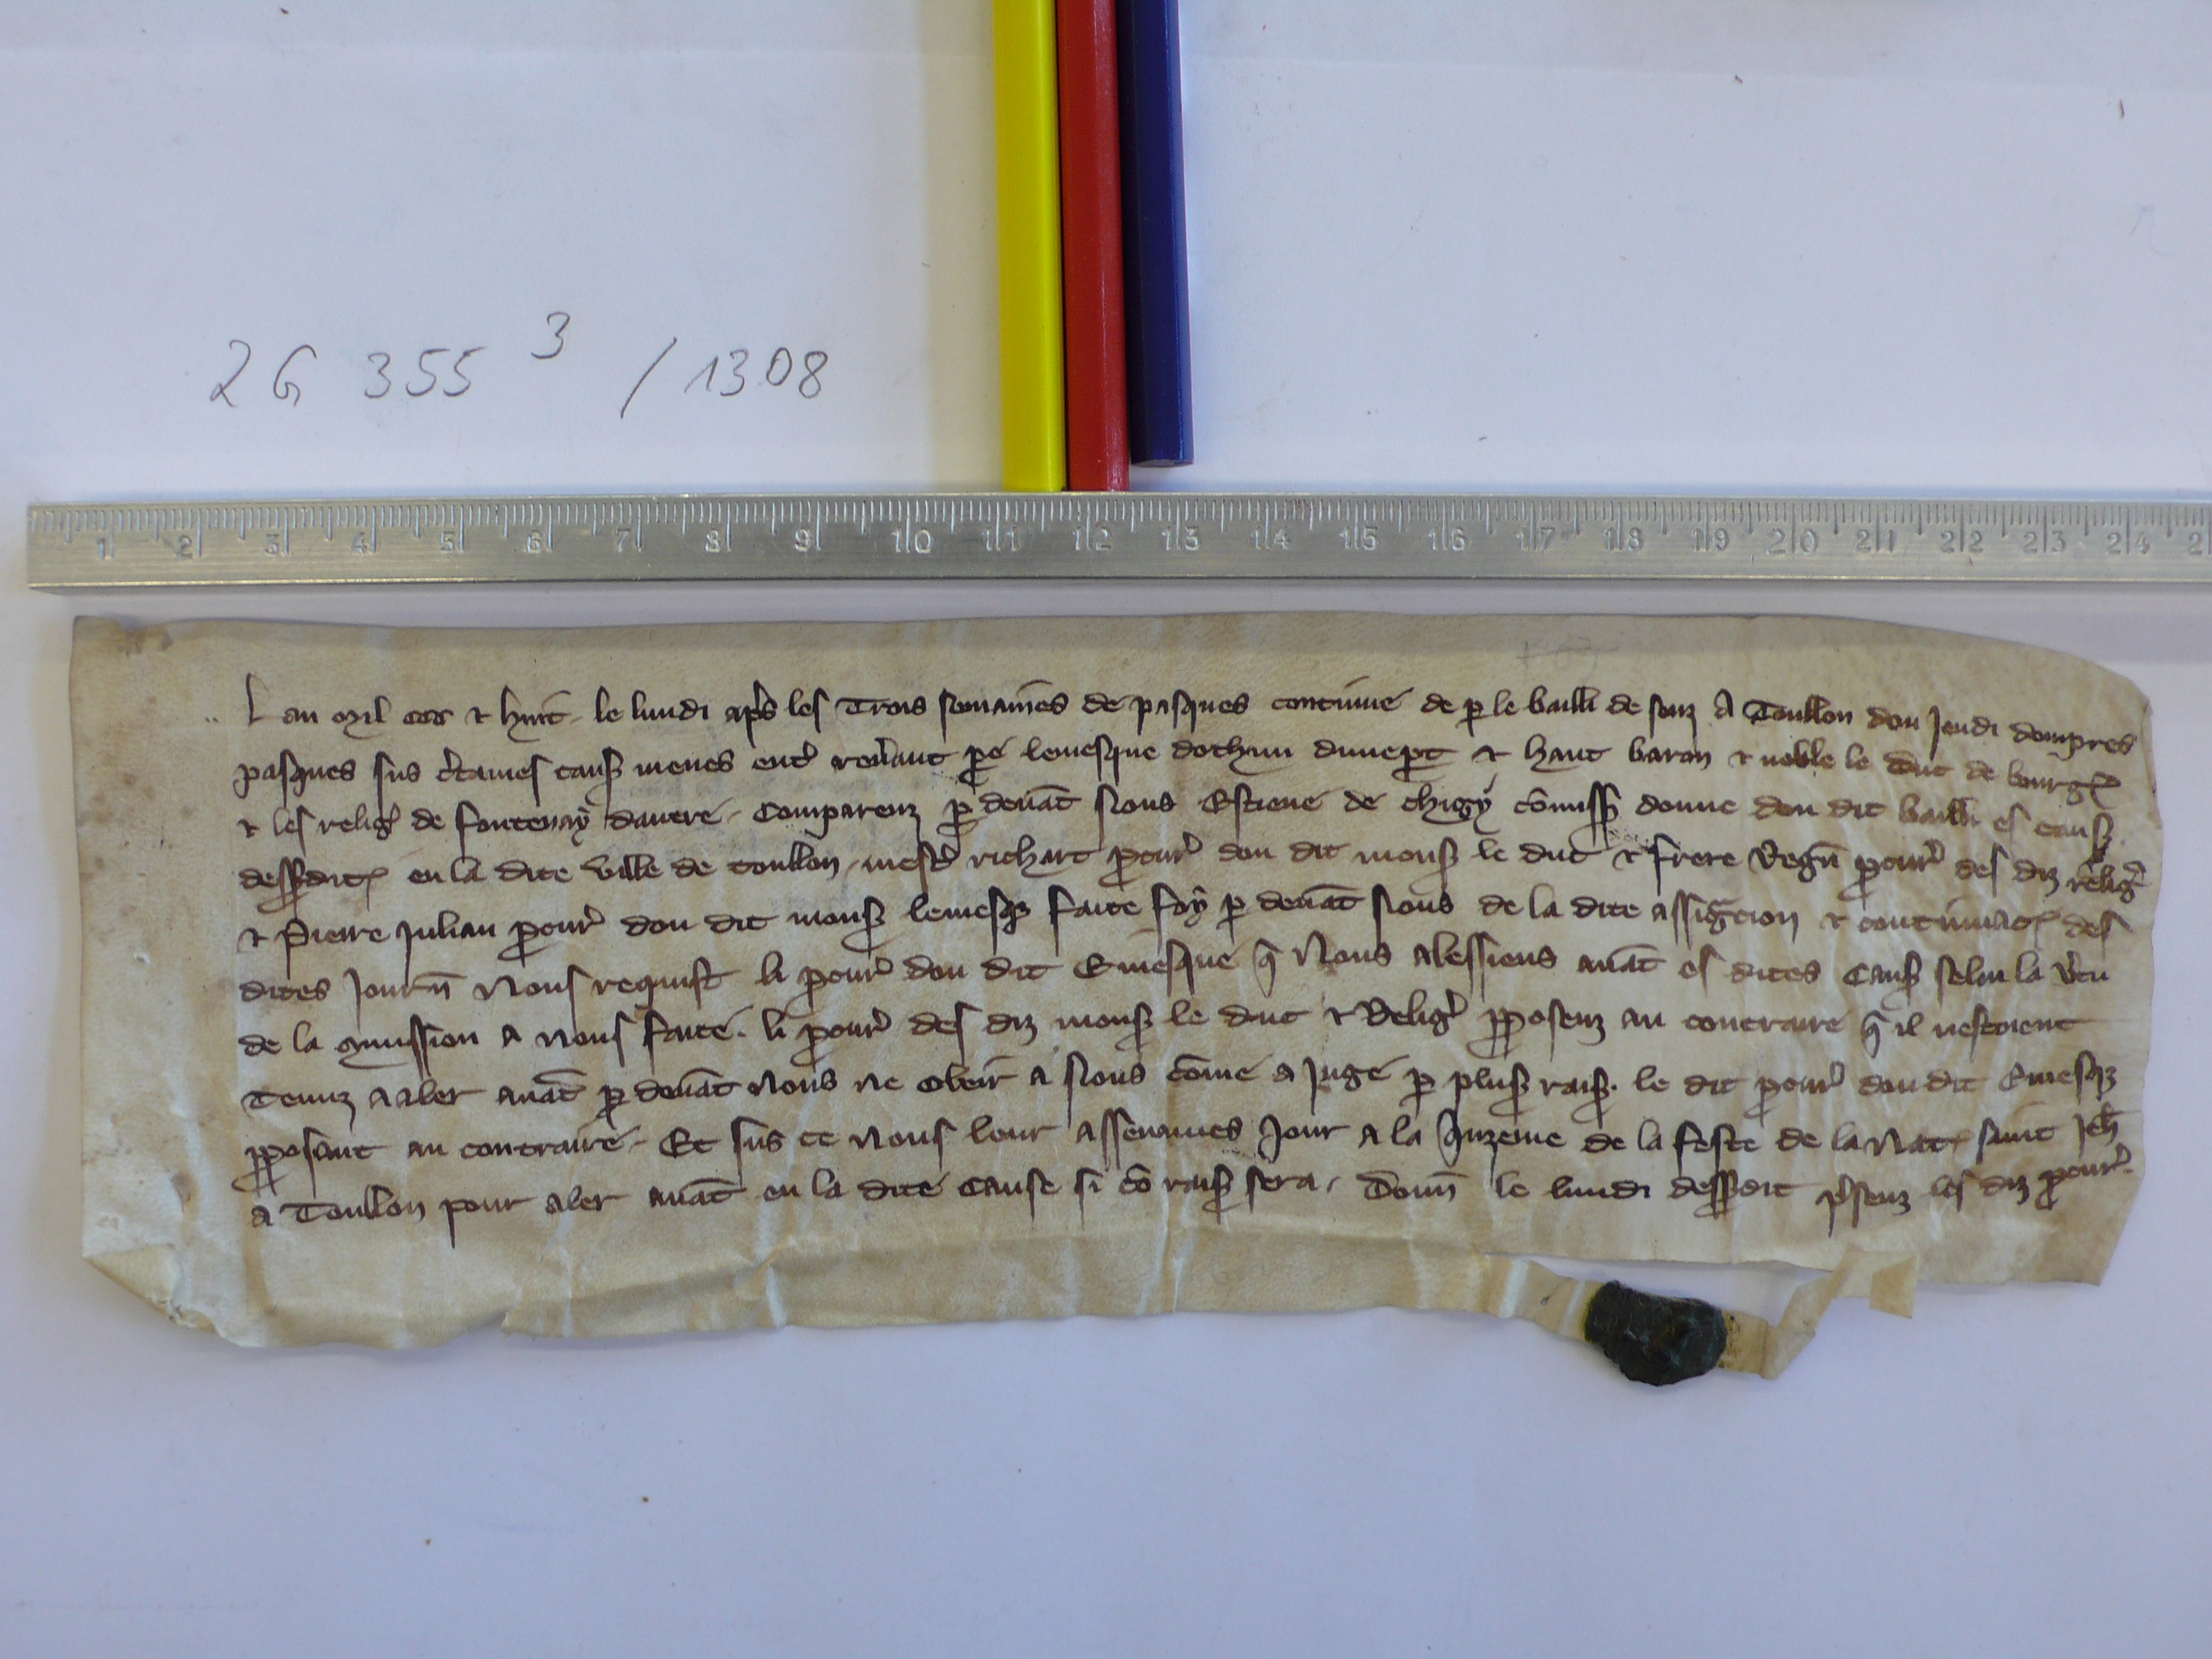 2G 355 3 / 1308
1 2 3 4 5 6 7 8 9 10 11 12 13 14 15 16 17 18 19 20 21 22 23 24 2
L an mil ccc ⁊ huit le lundi apˢ les Trois semaines de pasques continue de ꝑ le bailli de senz A Toullon dou Jeudi dempres
pasques sus ctaines caus menes ent reuant pe leuesque dothun dunept ⁊ haut baron ⁊ noble le duc de bourg
⁊ les relig de fontenay dauere Comparenz ꝑ deuāt Nous Estiene de chigy cōmiss donne dou dit bailli es caus
dessdit en la dite ville de toullon mest richart pcur dou dit mons le duc ⁊ frere pcur des diz relig
⁊ Pierre Julian pcur dou dit mons leuesqȝ faite foy ꝑ deuāt Nous de la dite assigcion ⁊ continuat des
dites Journ Nous requist li pcur dou dit Euesque q̄ Nous alessiens auāt es dites Caus selm la vtu
de la cmission a nous faite. li pcur des diz mons le duc ⁊ Relig pposenz au contraire q̄ il nestoient
Tenuz a aler auāt ꝑ deuāt Nous ne obeir a Nous cōme a Juge ꝑ plus rais. le dit pcur dou dit Euesqȝ
pposant au contraire Et sus ce Nous leur assenames Jour a la qnzeine de la feste de la Nat saint Jeh
a Toullon pour aler auāt en la dite Cause si cō rais sera. Donn le lundi dessdit psenz les diz pcur.